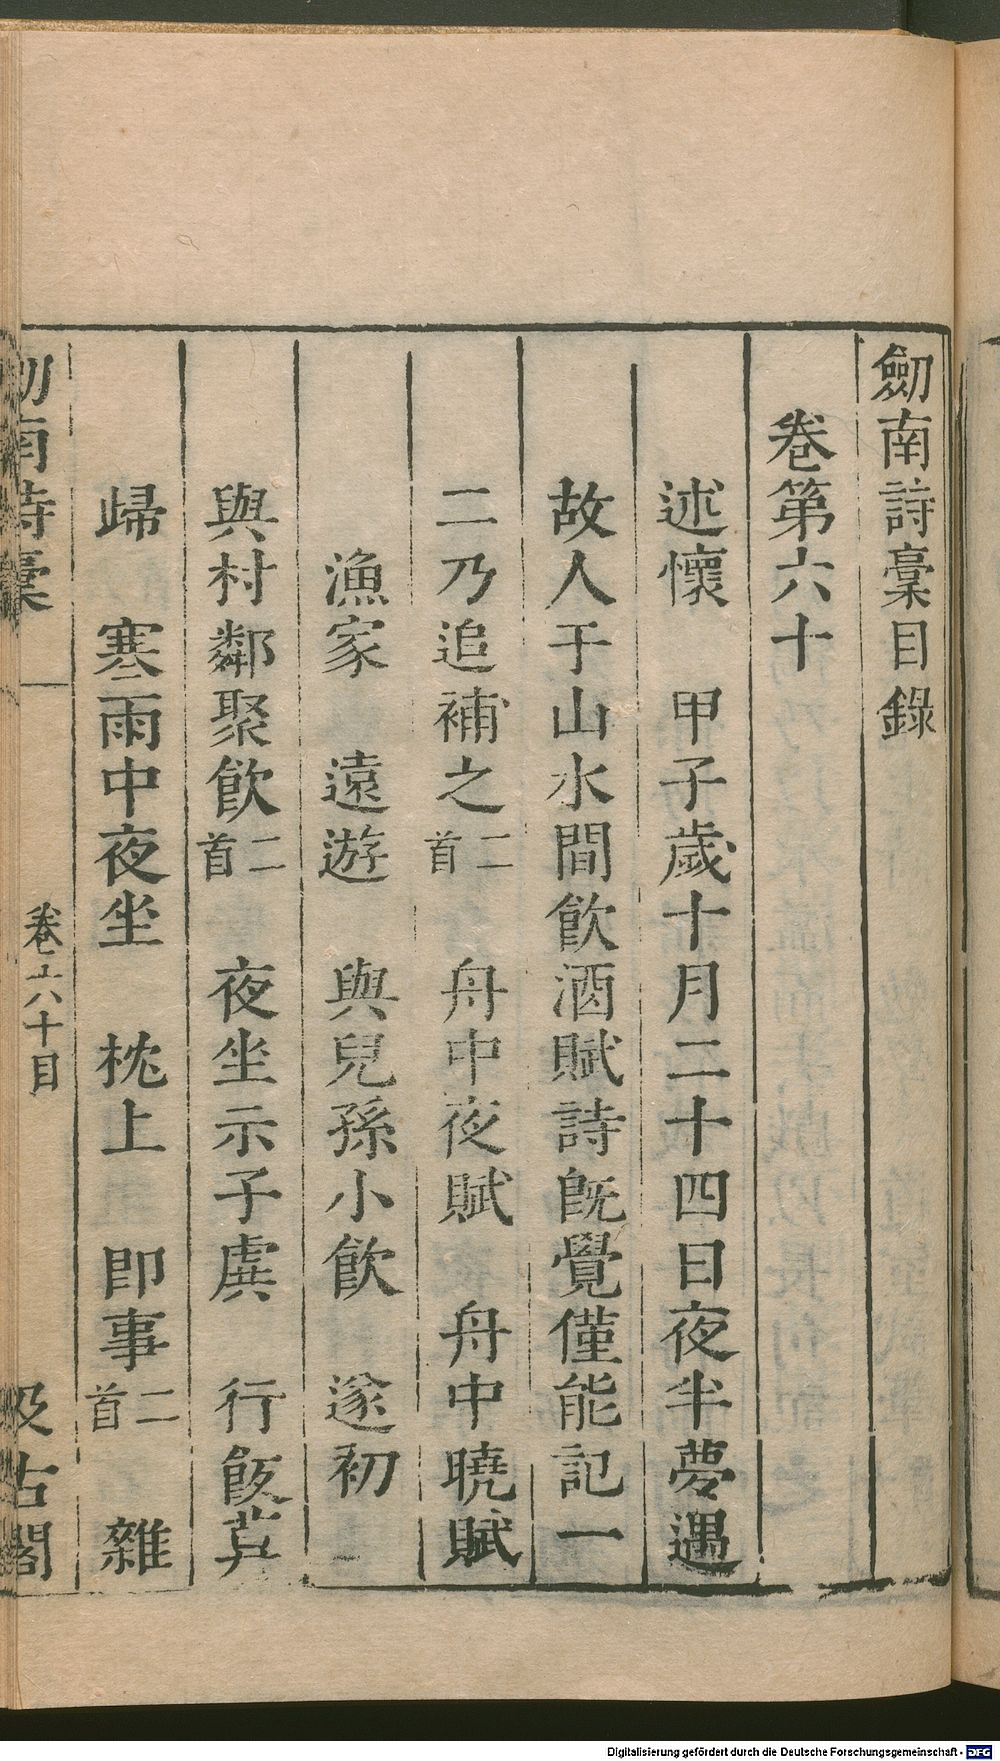 劒南詩稾目錄
卷第六十
述懷　甲子歲十月二十四日夜半夢遇
故人于山水間飲酒賦詩旣覺僅能記一
二乃追補之二首　舟中夜賦　舟中曉賦
漁家　遠遊　與兒孫小飲　遂初
與村鄰聚飲二首　夜坐示子虡　行飯
歸　寒雨中夜坐　枕上　卽事二首　雜
劒南詩稾　卷六十目　汲古閣
Digitalisierung gefördert durch die Deutsche Forschungsgemeinschaft - DFG